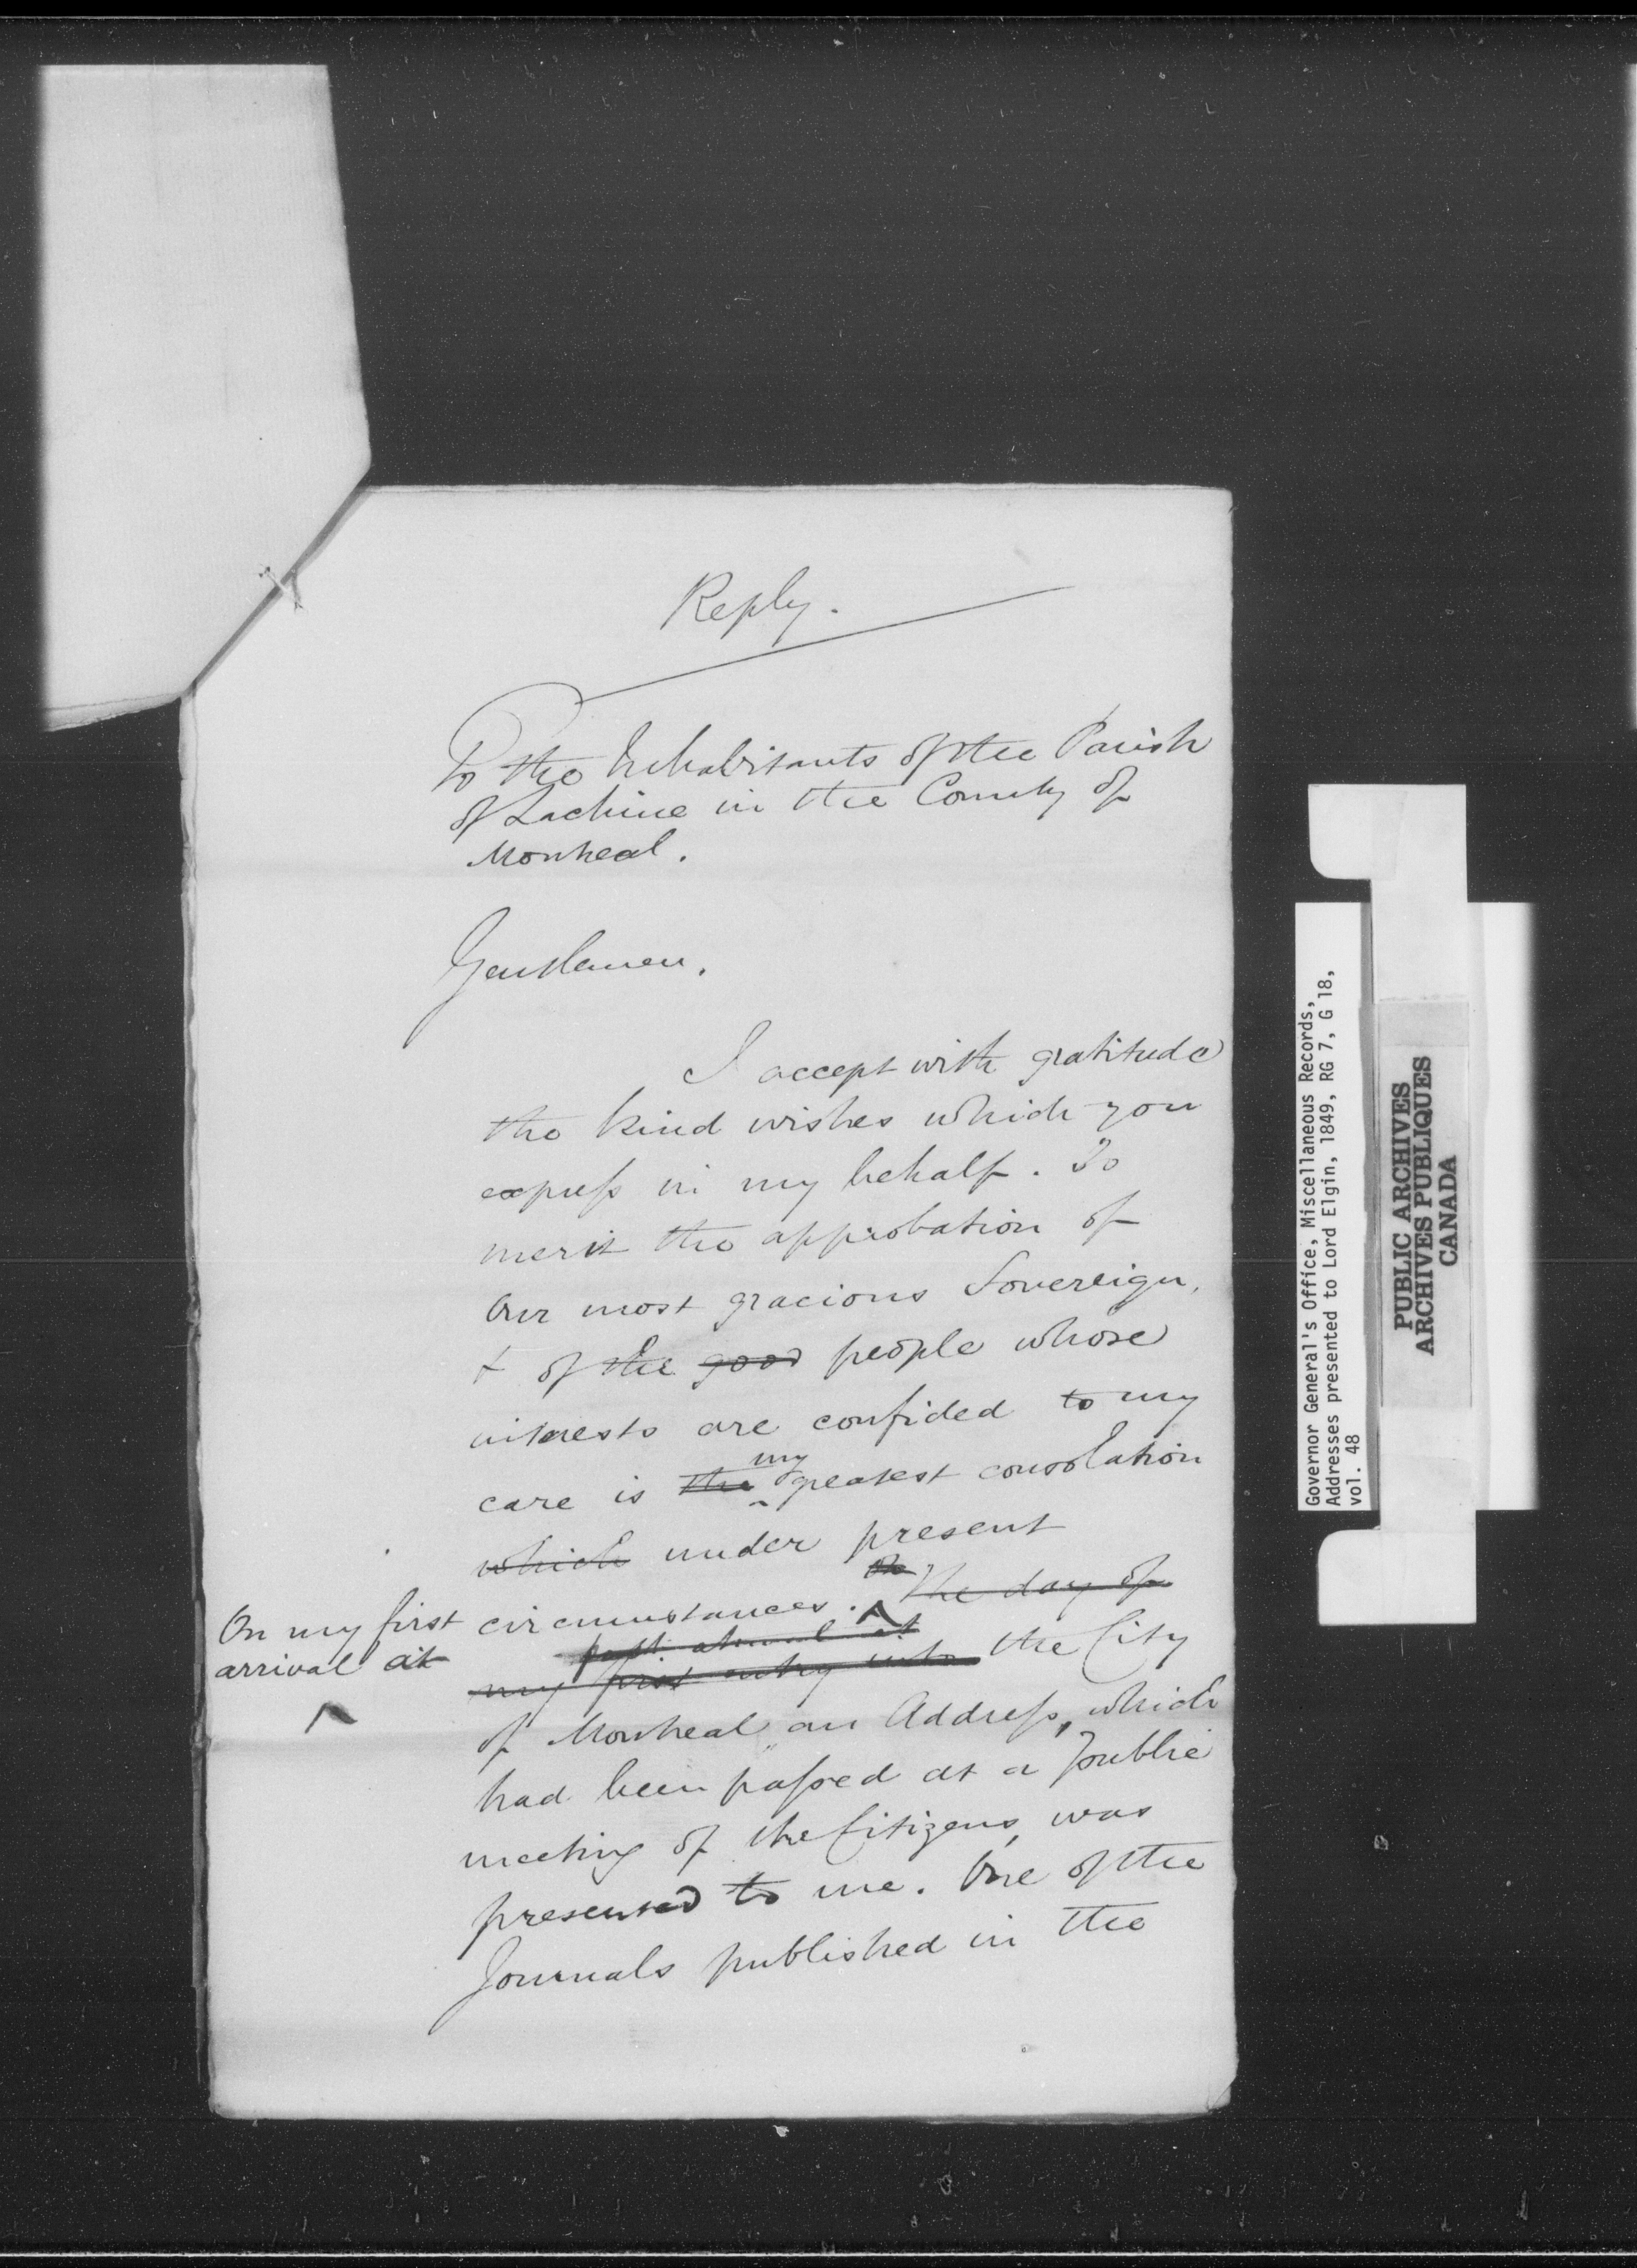 Reply.
To the Inhabitants of the Parish
of Lachine in the County of
Montreal.
Gentlemen.
I accept with gratitude
the kind wishes which you
express in my behalf. To
merit the approbation of
Our most gracious Sovereign,
& of the good people whose
interests are confided to my
my
care is the greatest consolation
which under present
On my first
arrival at
circumstances. On The day of
first arrival at
my first entry into the City
of Montreal an Address, which
had been passed at a public
meeting of the Citizens, was
presented to me. One of the
Journals published in the
Governor General's Office, Miscellaneous Records,
Addresses presented to Lord Elgin, 1849, RG 7, G 18,
vol. 48
PUBLIC ARCHIVES
ARCHIVES PUBLIQUES
CANADA